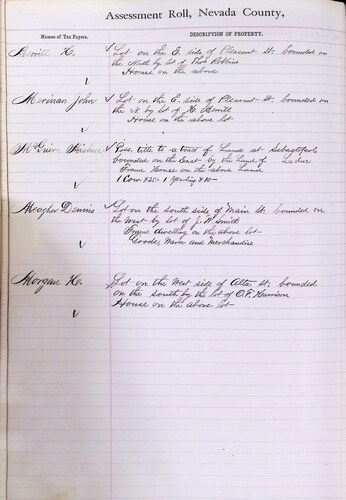 Assessment Roll, Nevada County,
Names of Tax Payers.
DESCRIPTION OF PROPERTY.
Merrill H. Lot on the E. side of Pleasant St. bounded on
the North by lot of Thos Robbins
House on the above
Merinan John Lot on the E. side of Pleasant St. bounded on
the N. by lot of H. Merrill
House on the above lot
Poss. title to a tract of Land at Sebastopol
bounded on the East by the Land of Ladue
Frame House on the above Land
1 Cow $25- 1 Yearling $10-
Meagher Dennis Lot on the south side of Main St. bounded on
the West by lot of J. W. Smith
Frame dwelling on the above lot-
Goods, Wares and Merchandise
Morgan H. Lot on the West side of Alta St. bounded
on the south by the lot of O. F. Harrison
House on the above lot-